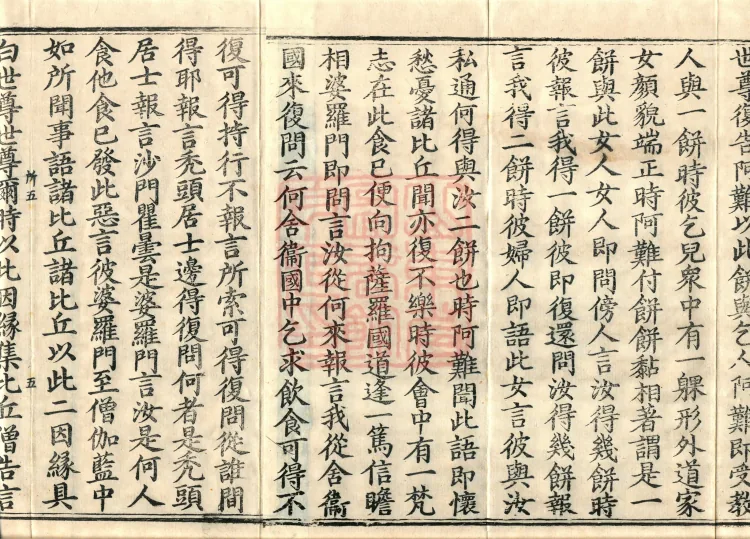 世尊復告阿難以此餅與乞人阿難即受教
人與一餅時彼乞兒衆中有一躶形外道家
女顏貌端正時阿難付餅餅黏相著謂是一
餅與此女人女人即問傍人言汝得幾餅時
彼報言我得一餅彼即復還問汝得幾餅報
言我得二餅時彼婦人即語此女言彼與汝
私通何得與汝二餅也時阿難聞此語即懷
愁憂諸比丘聞亦復不樂時彼會中有一梵
志在此食已便向拘薩羅國道逢一篤信瞻
相婆羅門即問言汝從何來報言我從舍衞
國來復問云何舍衞國中乞求飲食可得不
復可得持行不報言所索可得復問從誰間
得耶報言禿頭居士邊得復問何者是禿頭
居士報言沙門瞿曇是婆羅門言汝是何人
食他食已發此惡言彼婆羅門至僧伽藍中
如所聞事語諸比丘諸比丘以此二因緣具
所五 五
白世尊世尊爾時以此因緣集比丘僧告言